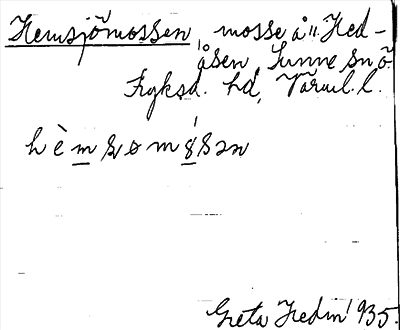 Hemsjömossen, mosse å "Hed-
åsen, Sunne sn ö
Fryksd. hd, Värml. l.
hèmsømósən
Greta Hedin 1935.